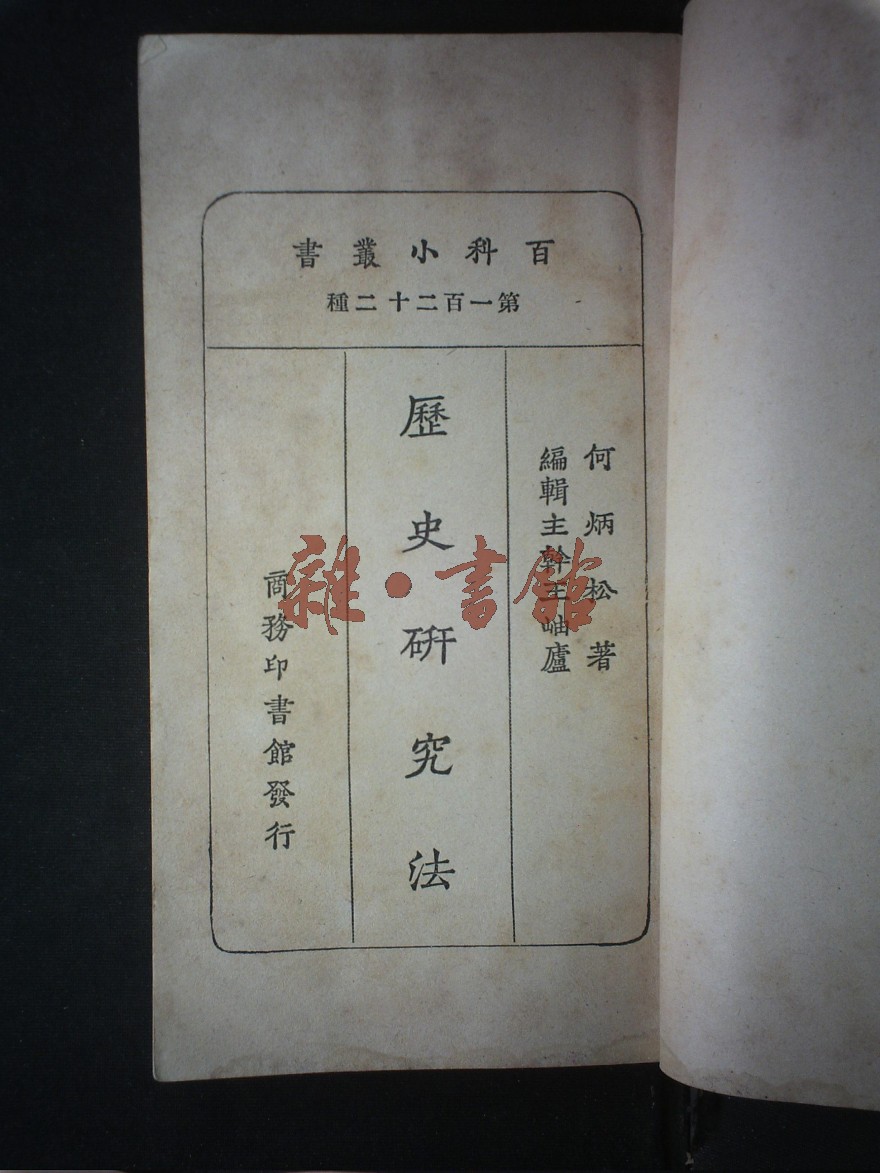 百科小叢書
第一百二十二種
何炳松著
編輯主幹王岫廬
歷史研究法
商務印書館發行
雜·書館